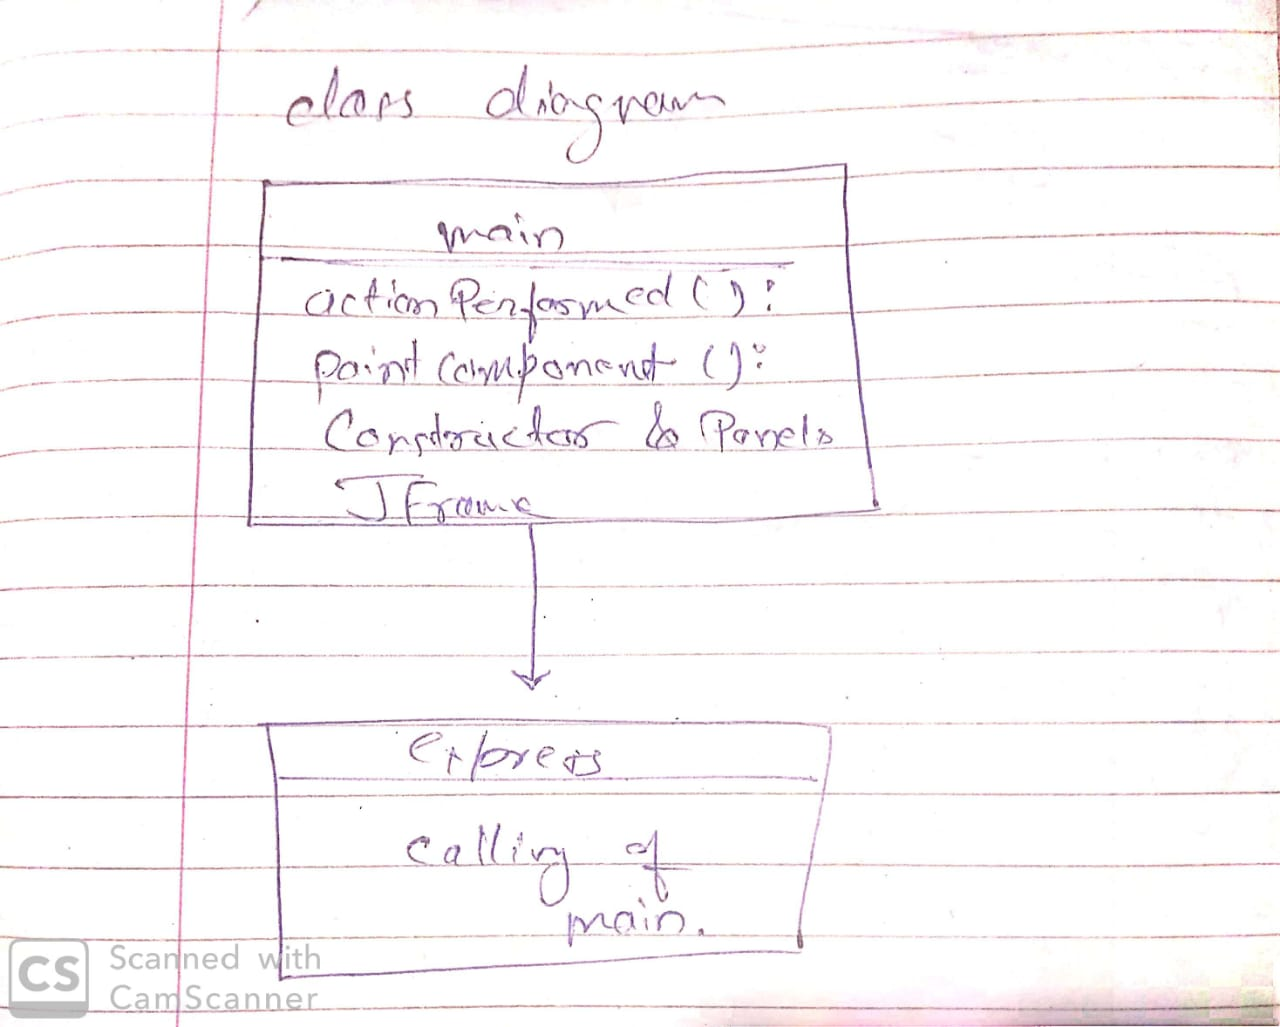 class diagram
main
actionPerformed ( ) :
paint Component ( ) :
Constructor & Panels
JFrame
express
calling of
main.
CS Scanned with
CamScanner